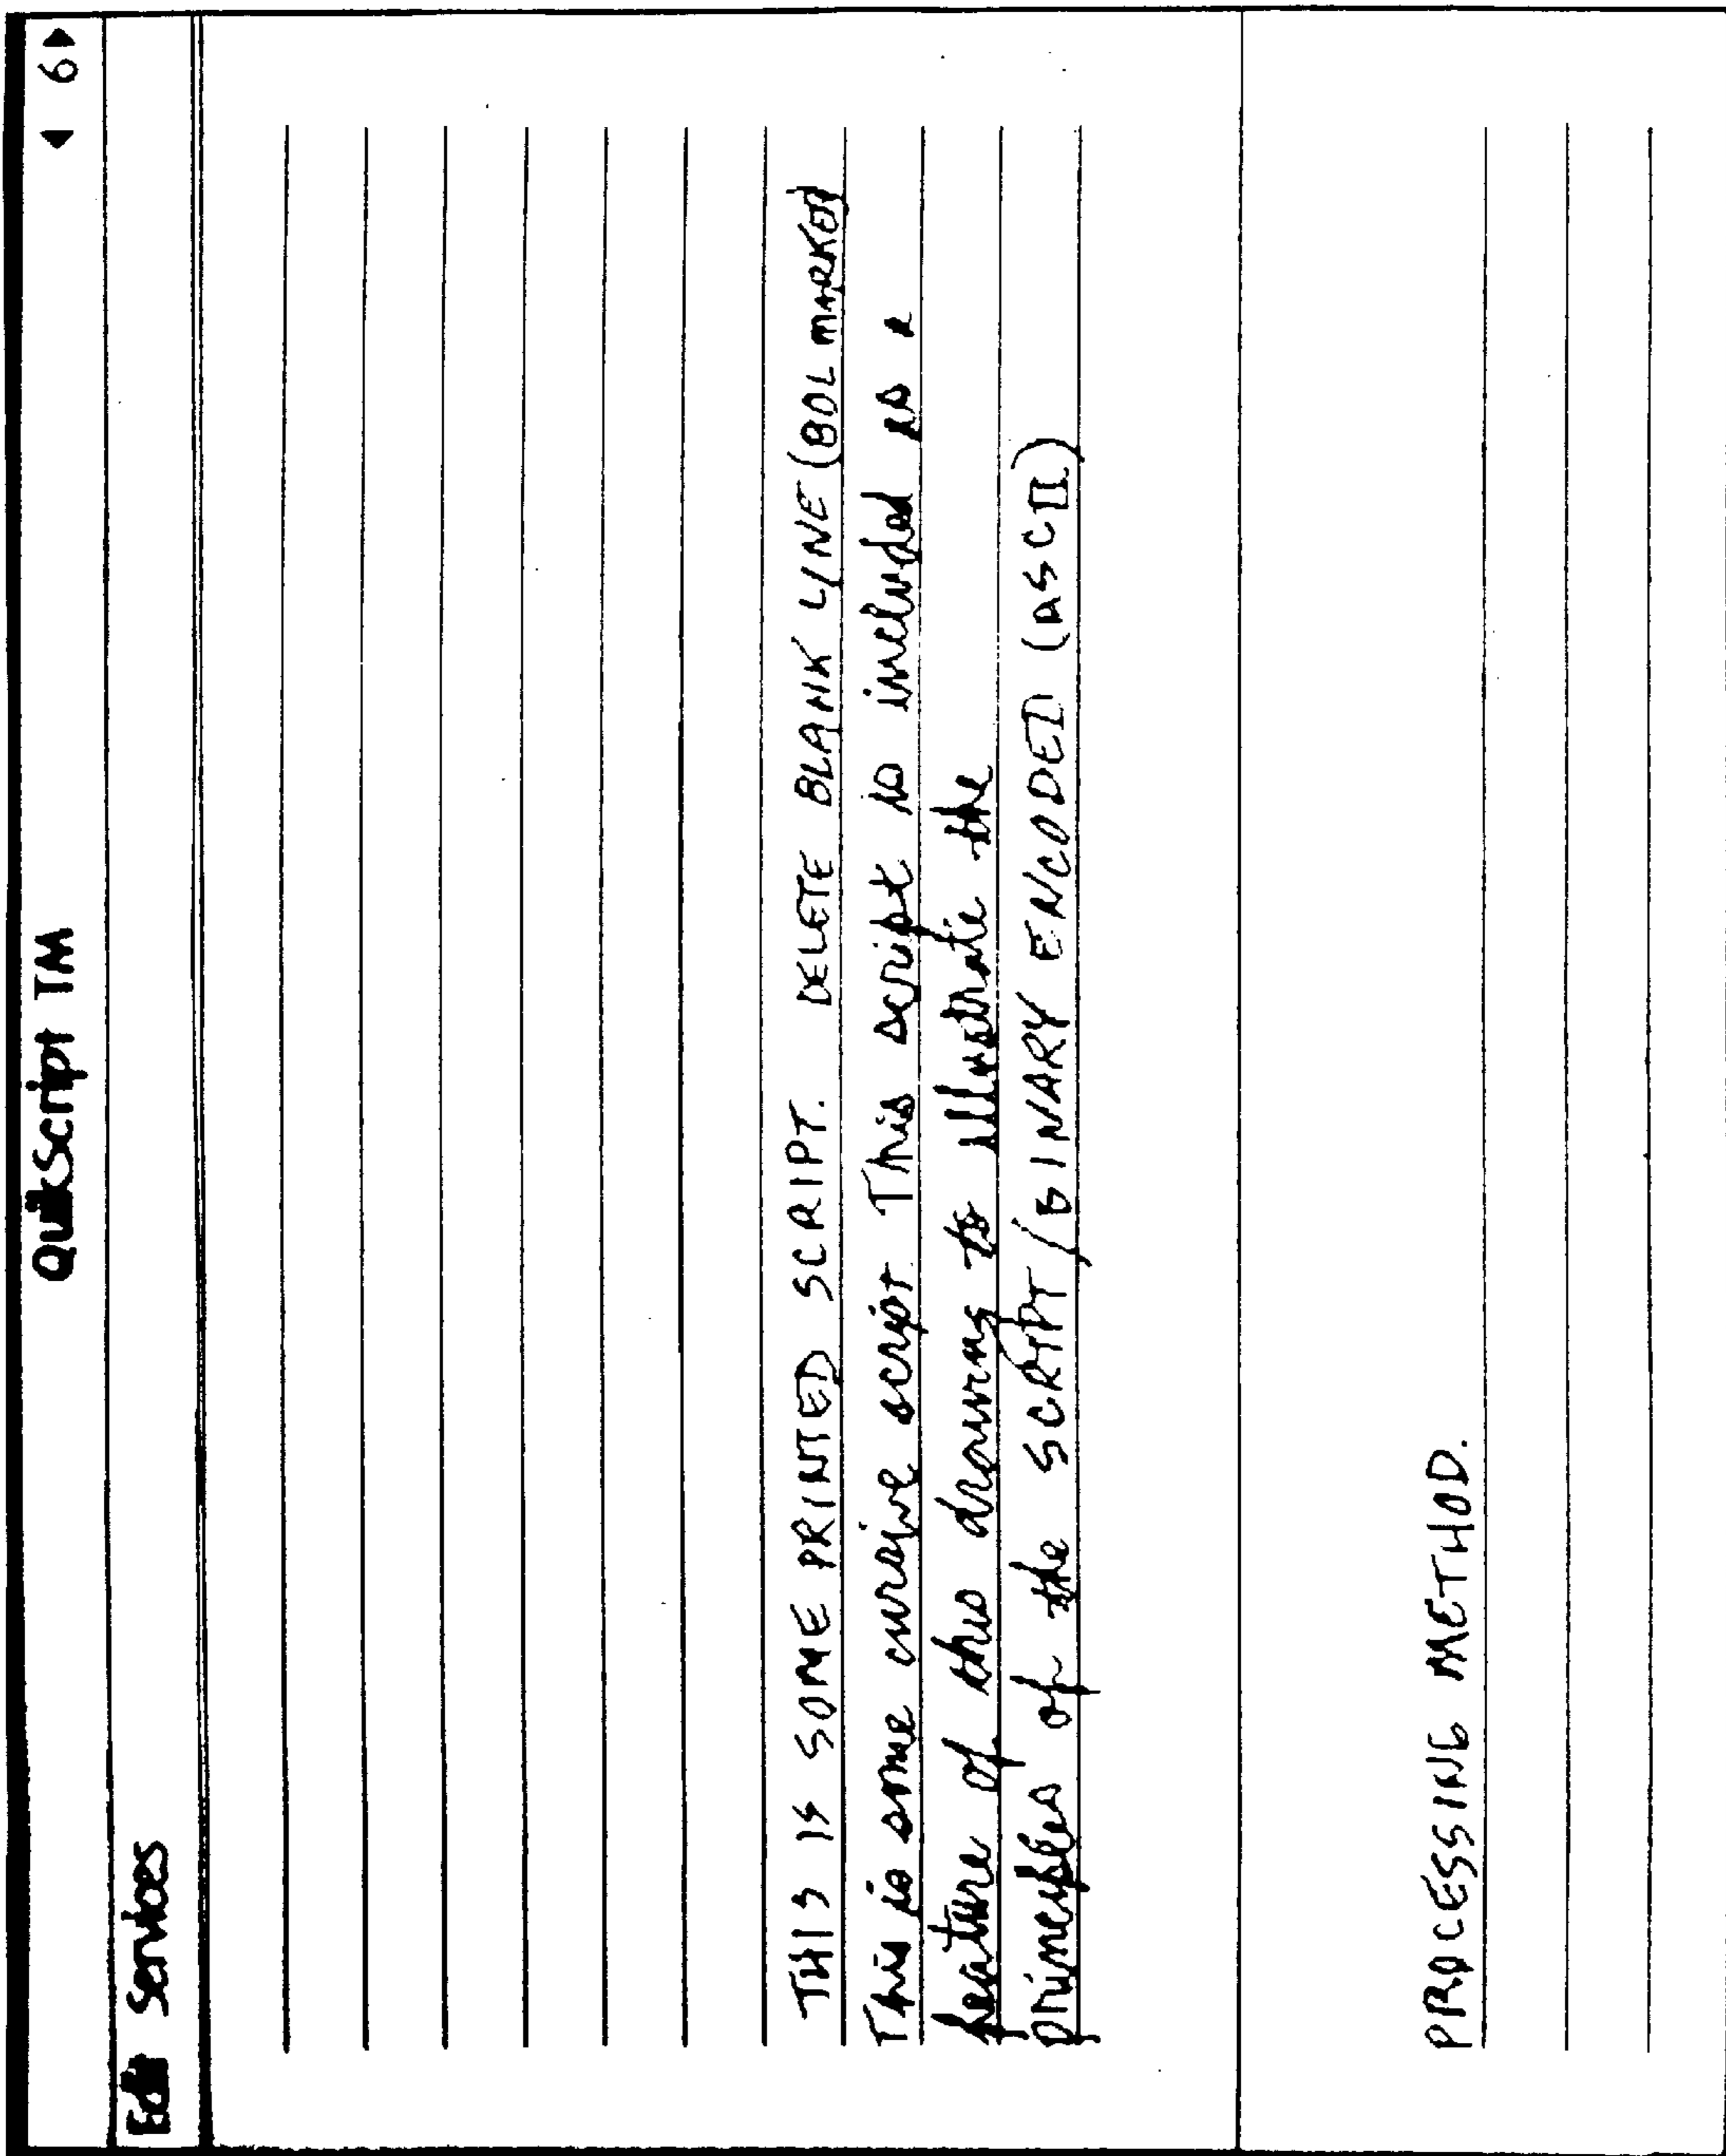 QuikScript TM ◄ 6 ►
Edit Services
THIS IS SOME PRINTED SCRIPT. DELETE BLANK LINE (BOL MARKED
This is some cursive script. This script is included as a
feature of this drawing to illustrate the
principles of the SCRIPT/BINARY ENCODED (ASCII)
PROCESSING METHOD.